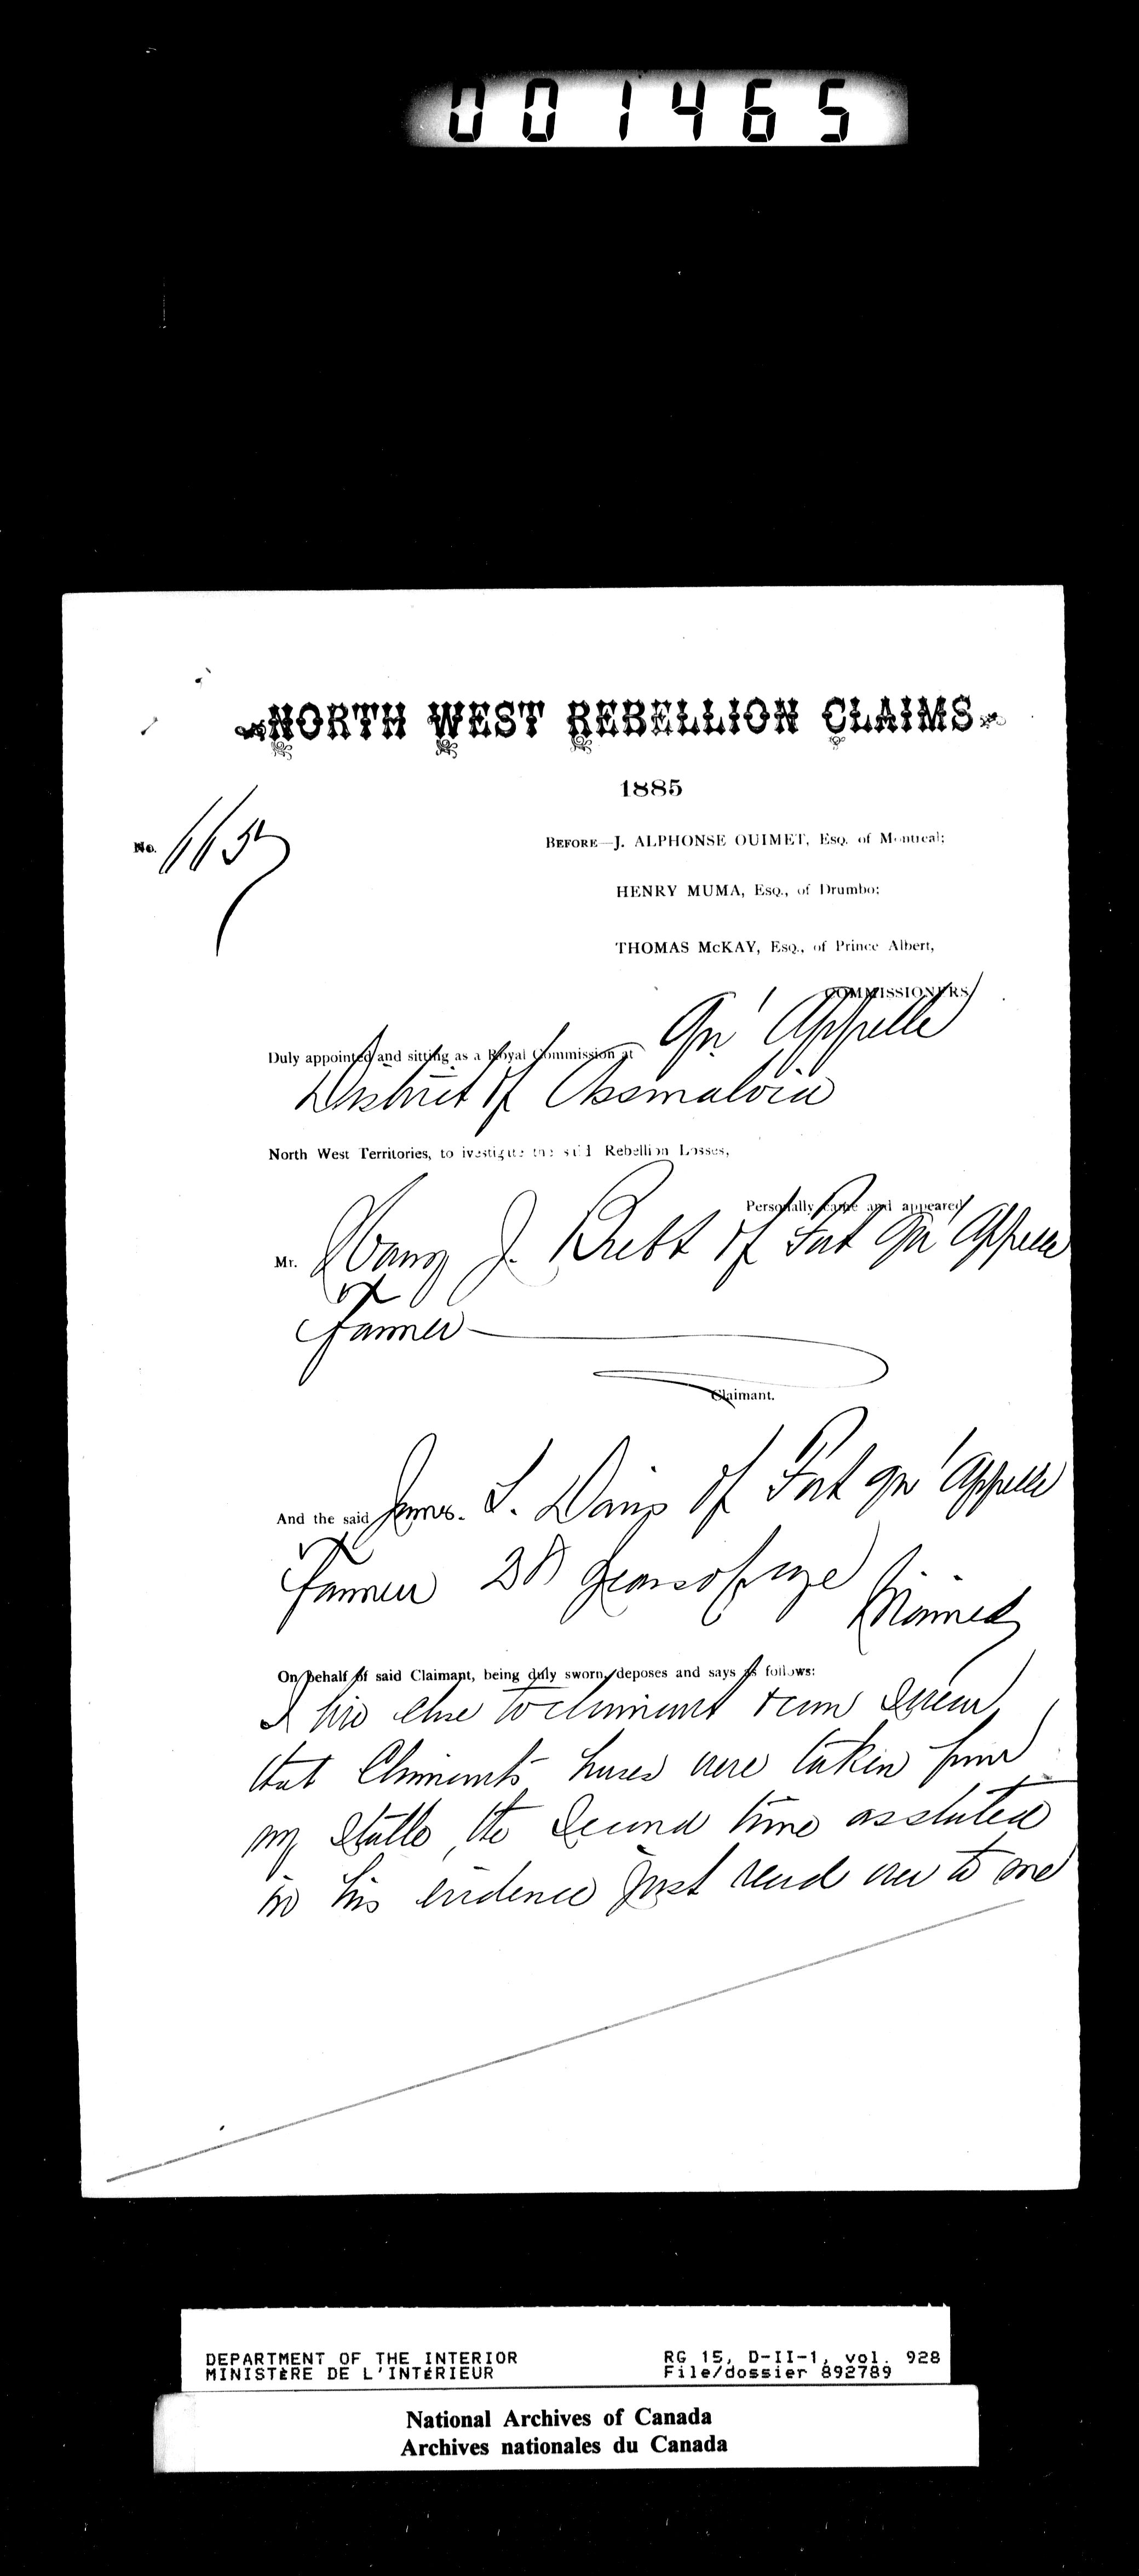 001465
NORTH WEST REBELLION CLAIMS
1885
No. 1157
BEFORE—J. ALPHONSE OUIMET, Esq. of Montreal;
HENRY MUMA, Esq., of Drumbo;
THOMAS McKAY, Esq., of Prince Albert,
COMMISSIONERS
Duly appointed and sitting as a Royal Commission at Qu'Appelle
District of Assinaboia
North West Territories, to ivestigate the said Rebellion Losses,
Personally came and appeared
Mr. J. Brebt of Fort Qu'Appelle
Farmer
Claimant.
And the said James. S. Davis of Fort Qu'Appelle
Farmer years of age Married
On behalf of said Claimant, being duly sworn, deposes and says as follows:
I live close to claimant
that Claimants horses were taken from
my stable, the Second time as stated
in his evidence just read over to me
DEPARTMENT OF THE INTERIOR
MINISTÈRE DE L'INTÉRIEUR
RG 15, D-II-1, vol. 928
File/dossier 892789
National Archives of Canada
Archives nationales du Canada